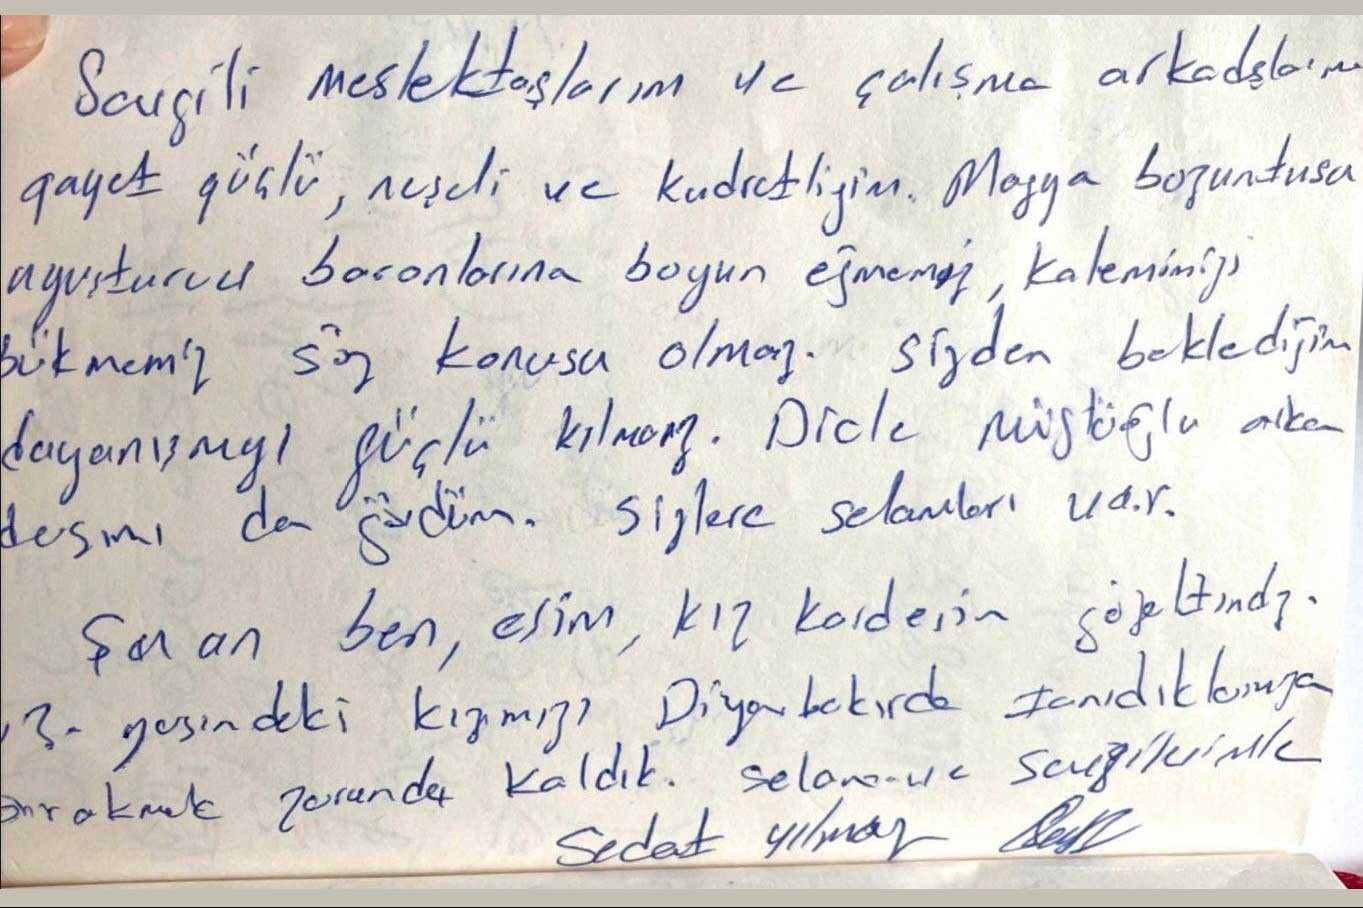 Sevgili meslektaşlarım ve çalışma arkadşlarım
gayet güçlü, neşeli ve kudretliyim. Mafya bozuntusu
uyuşturucu baronlarına boyun eğmemiz, kalemimizi
bükmemiz söz konusu olmaz. Sizden beklediğim
dayanışmayı güçlü kılmanız. Dicle Müftüoğlu arka
daşımı da gördüm. Sizlere selamları var.
Şu an ben, eşim, kız kardeşim gözaltındız.
yaşındaki kızımızı Diyarbakırda tanıdıklarımıza
bırakmak zorunda kaldık. Selam ve Sevgilerimle
Sedat Yılmaz